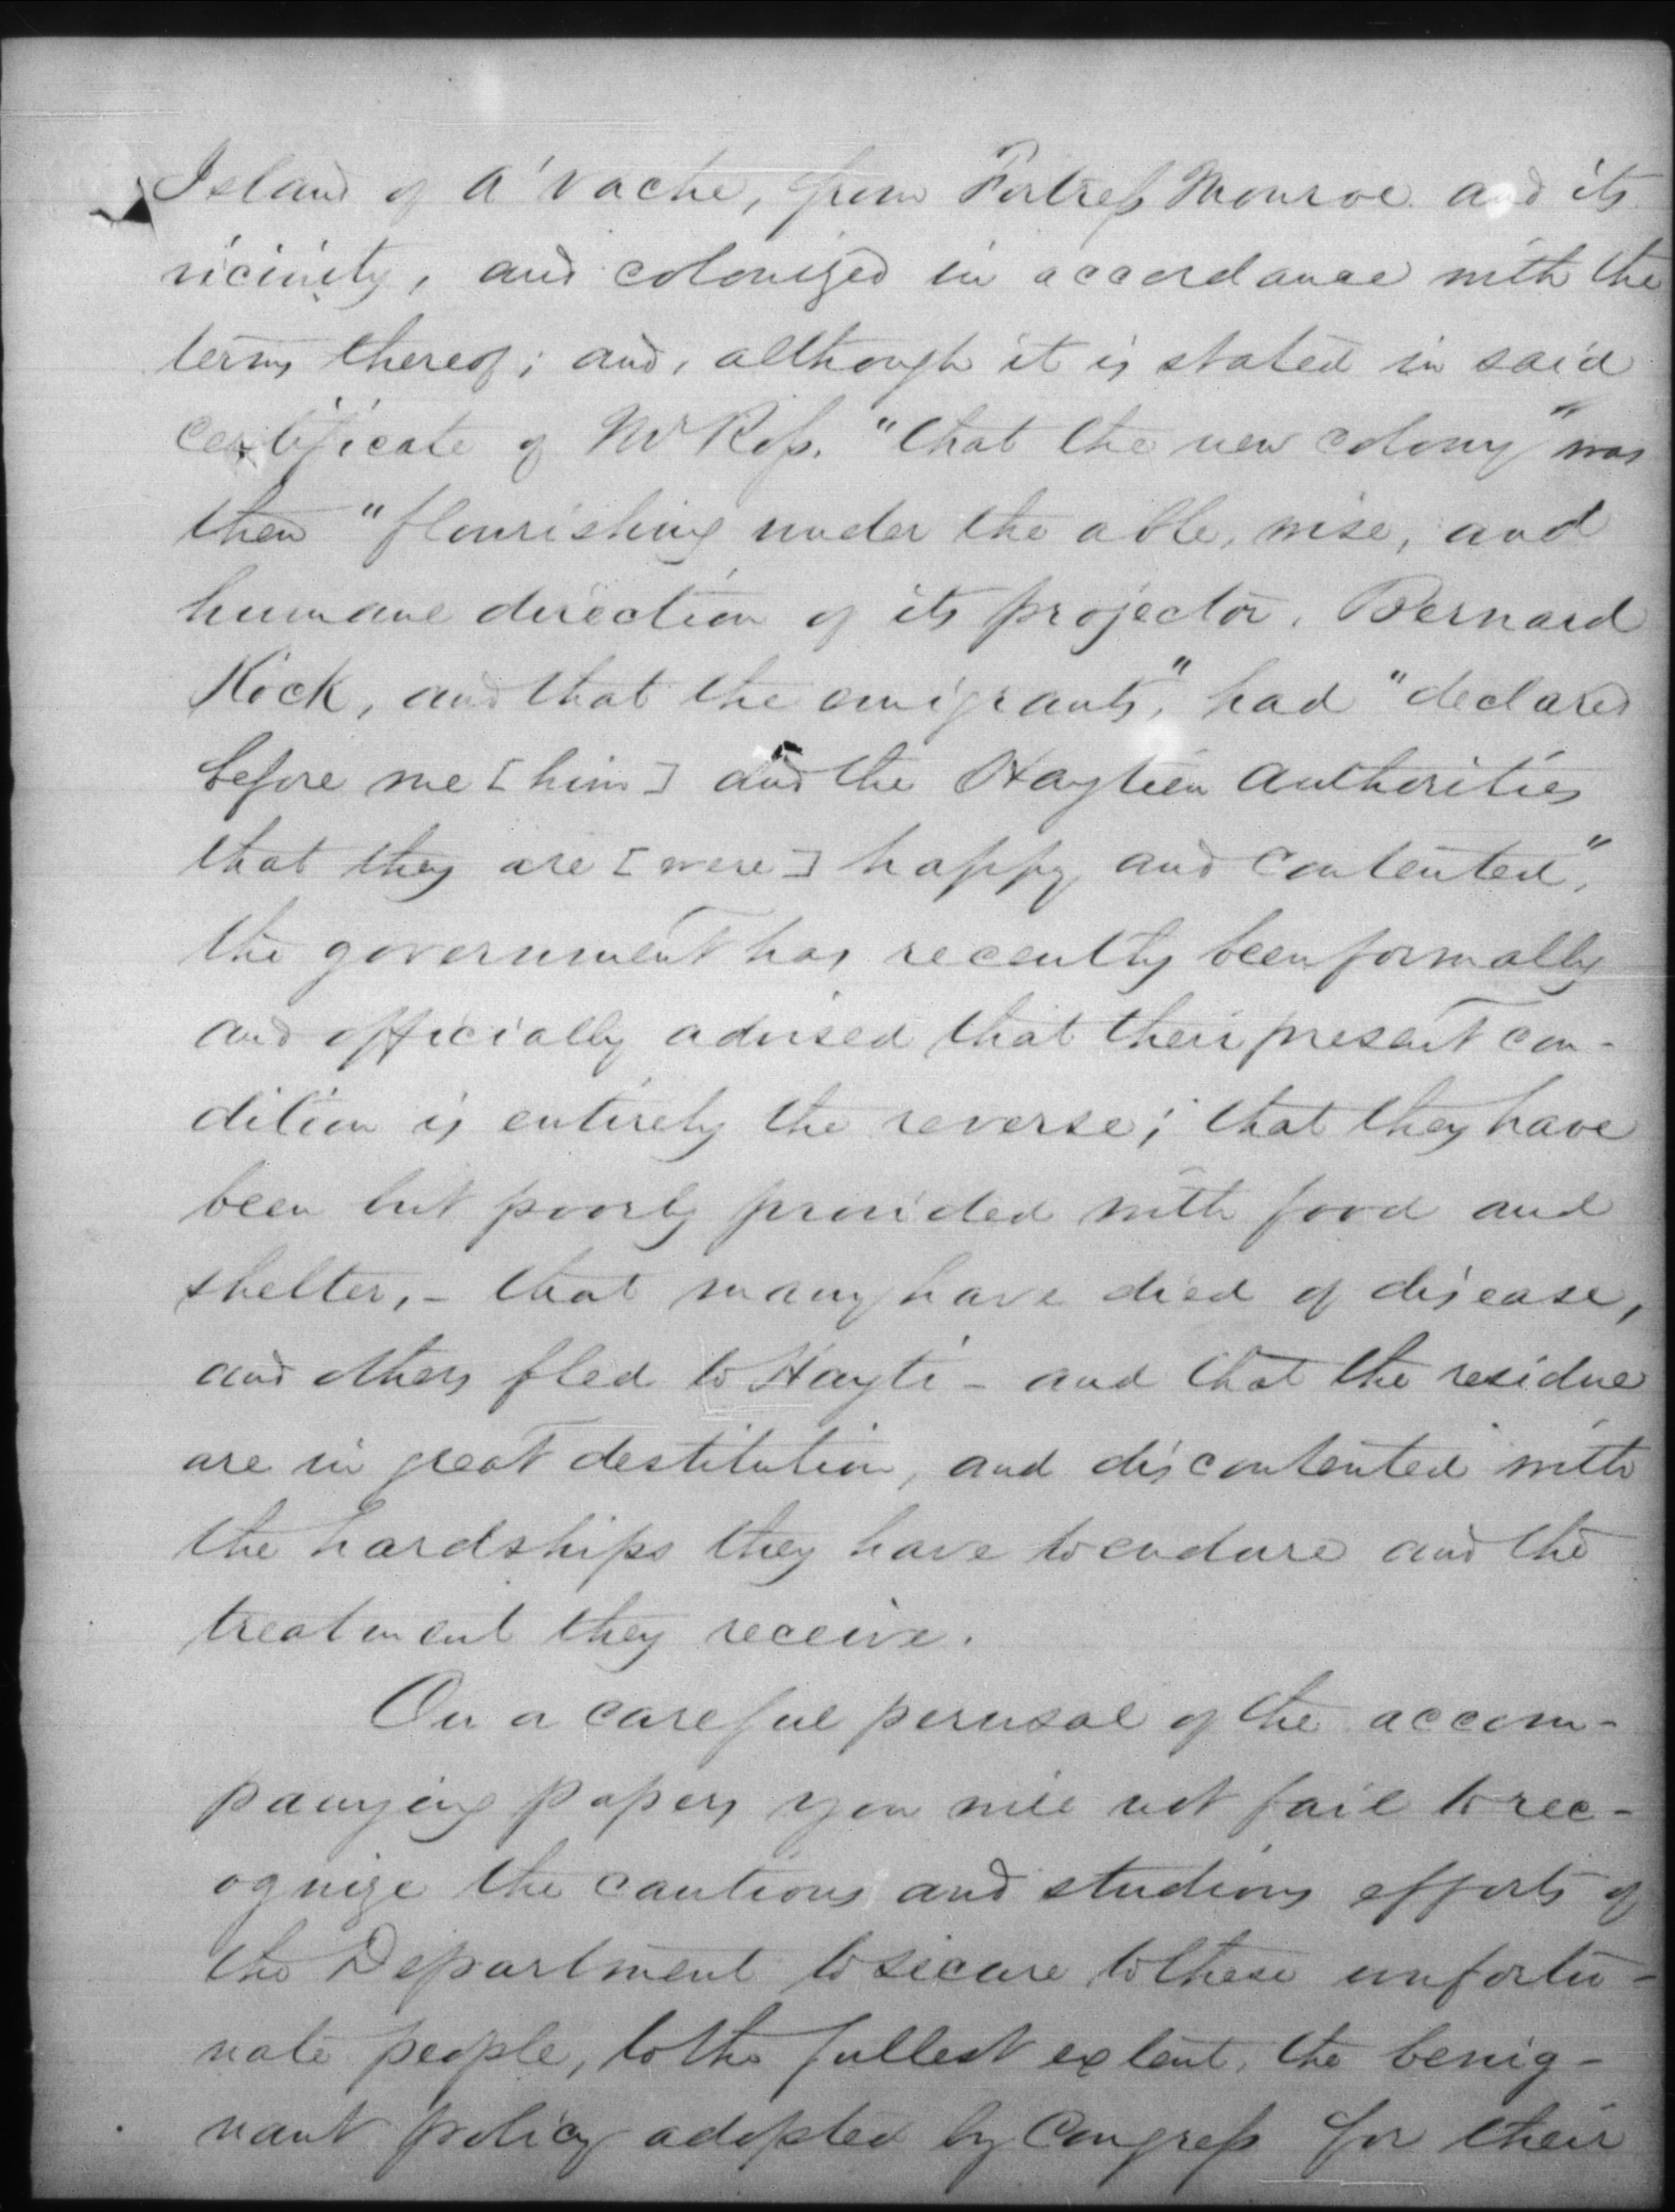 Island of A'Vache, from Fortress Monroe and its
vicinity, and colonized in accordance with the
terms thereof; and, although it is stated in said
certificate of Mr Ross. "that the new colony" was
then "flourishing under the able, wise, and
humane direction of its projector, Bernard
Kock, and that the emigrants," had "declared
before me [him] and the Haytien authorities
that they are [were] happy and contented",
the government has recently been formally
and officially advised that their present con-
dition is entirely the reverse; that they have
been but poorly provided with food and
shelter, - that many have died of disease,
and others fled to Hayti - and that the residue
are in great destitution, and discontented with
the hardships they have to endure and the
treatment they receive.
On a careful perusal of the accom-
panying papers you will not fail to rec-
ognize the cautious and studious efforts of
the Department to secure to these unfortu-
nate people, to the fullest extent, the benig-
nant policy adopted by Congress for their